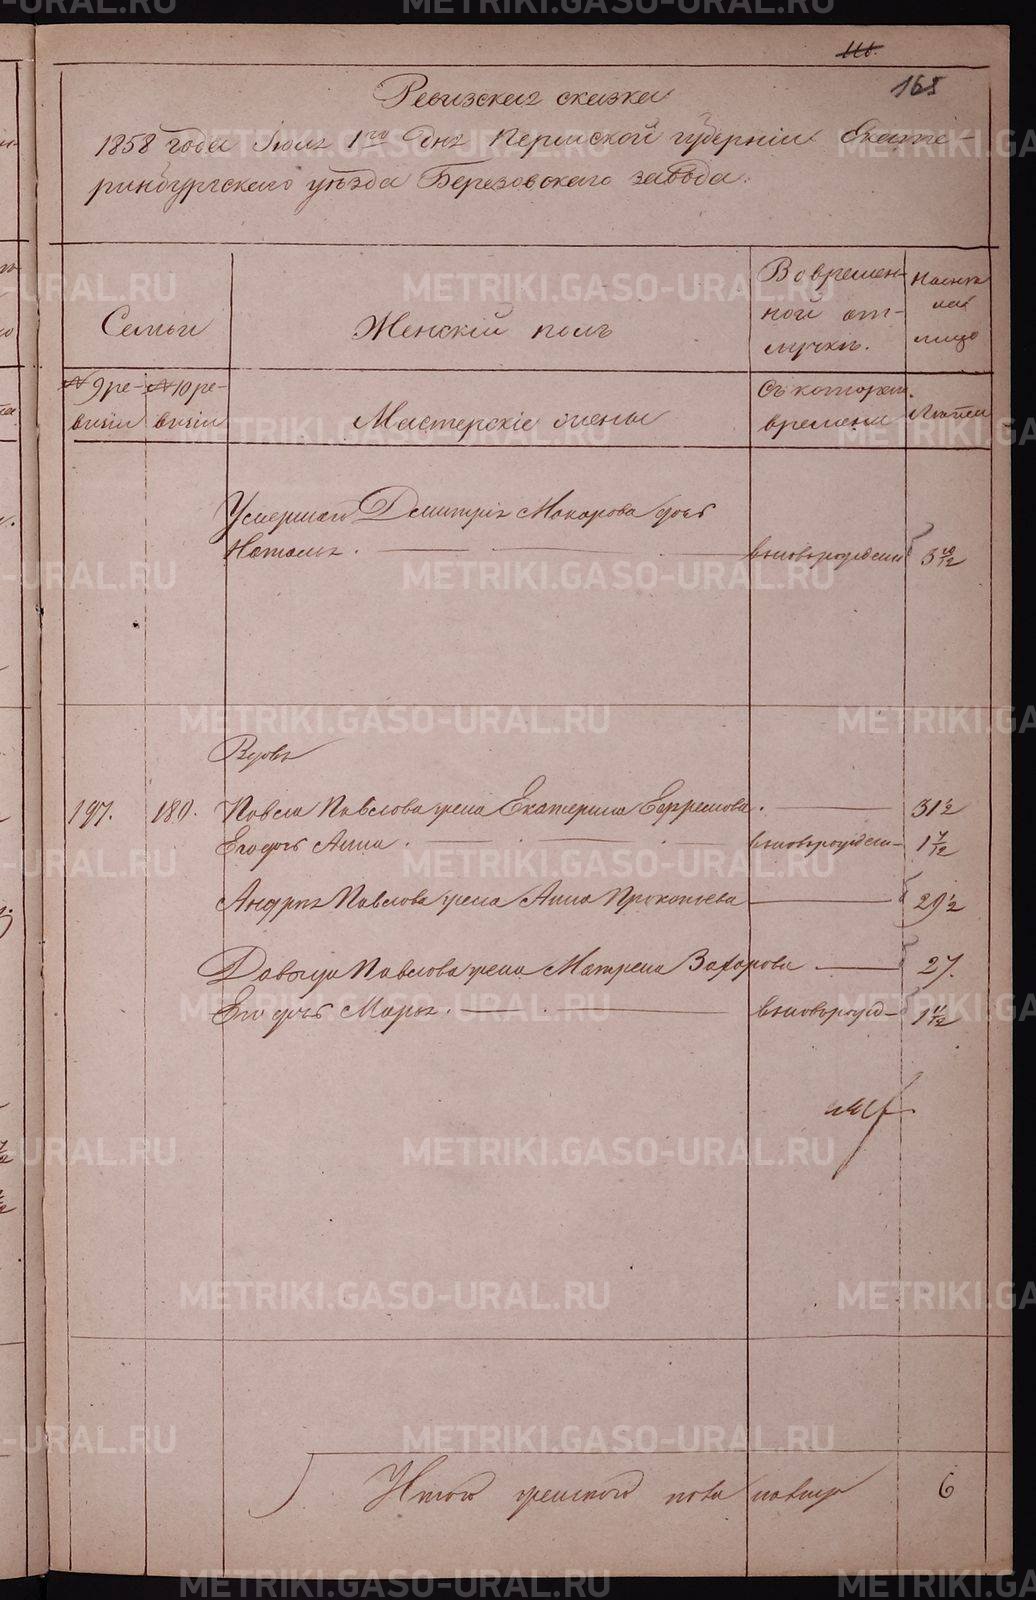 111.
168
Ревизская сказка
1858 года Июля 1го дня Пермской губернiи Екате-
ринбургскаго уѣзда Березовскаго завода.
Семьи
Женскiй полъ
Во времен-
ной от-
лучкѣ.
Налич
ная
лицо
№ 9 ре-
визiи
№ 10 ре-
визiи
Мастерскiе жены
Съ котораго
времени
Лѣта
Умершаго Дмитрiя Макарова дочь
Наталья . вновьрожден 5 10/12
Вдовы
197. 180. Павла Павлова жена Екатерина Ефремова . 31 1/2
Его дочь Анна . вновьрожден- 1 7/12
Андрея Павлова жена Анна Прокопьева 29 1/2
Давыда Павлова жена Матрена Захарова 27.
Его дочь Марья . вновьрожд- 1 11/12
Итого женскаго пола 6
METRIKI.GASO-URAL.RU